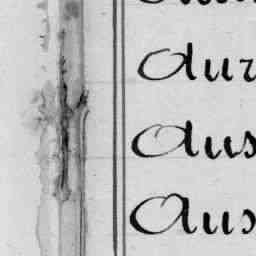 Aur
Aus
Aus